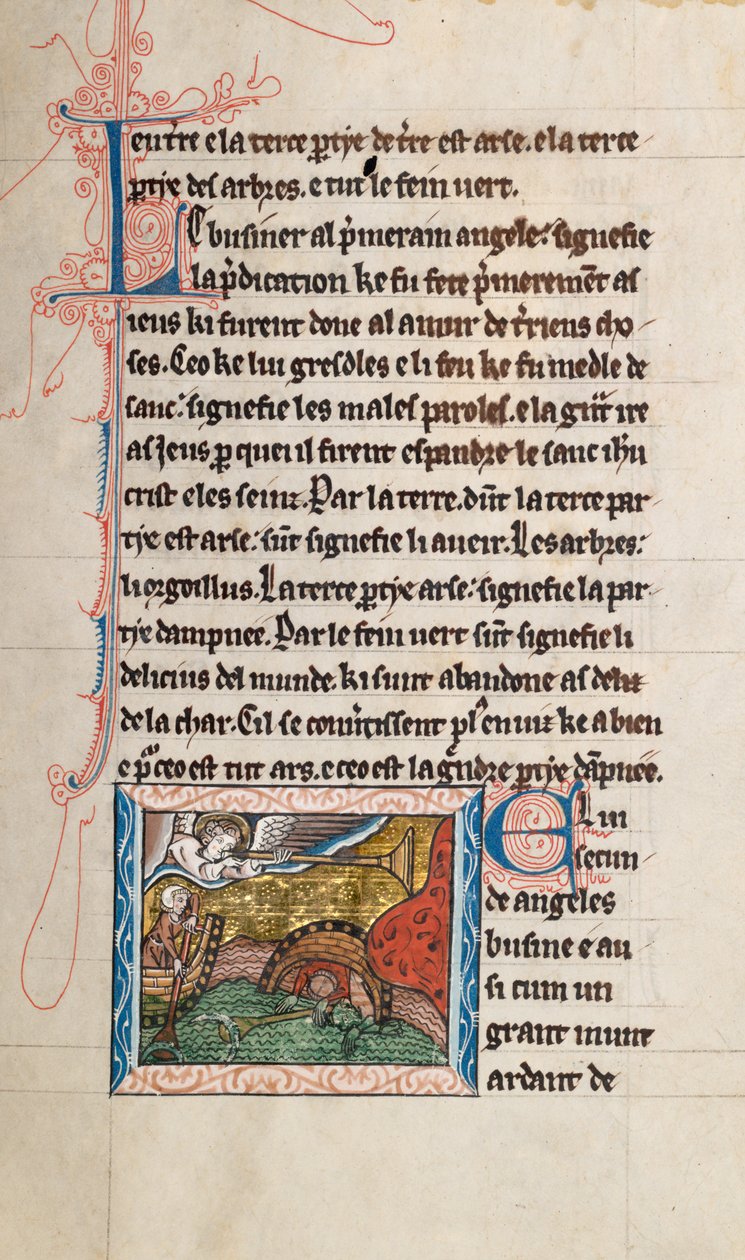 en tr̄e e la terce ꝑtẏe de tr̄e est arse. e la terce
ꝑtẏe des arbres. e tut le fein uert.
Le businer al p̄merain angele: signefie
la p̄dication ke fu fete p̄meremēt as
ieus ki furent done al amur de tr̄iens cho
ses. Ceo ke lui gresdles e li feu ke fu medle de
sanc: signefie les males paroles. e la gūt ire
as Jeus ꝑ quei il firent espandre le sanc ihū
crist e les seinz. Par la terre. dūt la terce par
tẏe est arse: sūt signefie li aueir. Les arbres:
li orgoillus. La terce ꝑtẏe arse: signefie la par
tẏe dampnee. Par le fein uert sūt signefie li
delicius del munde. ki sunt abandone as deliz
de la char. Cil se cōuertissent plꝰ enuiz ke a bien
e pᵒ ceo est tut ars. e ceo est la gᵃndre ꝑtẏe dāpnee.
E li
secun
de angeles
busine e au
si cum un
grant munt
ardant de